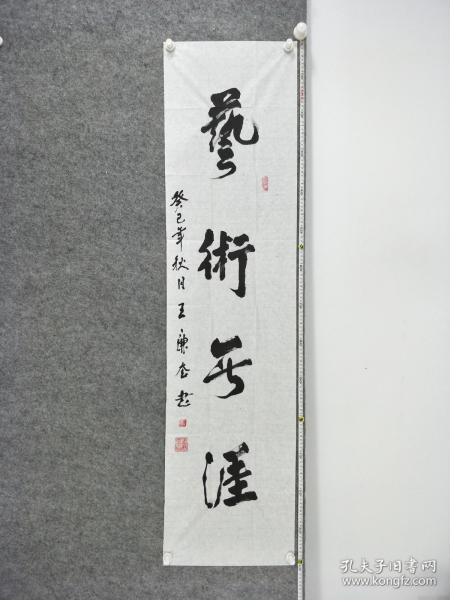 藝術无涯
癸巳年秋月王康奎书
孔夫子旧书网
www.kongfz.com